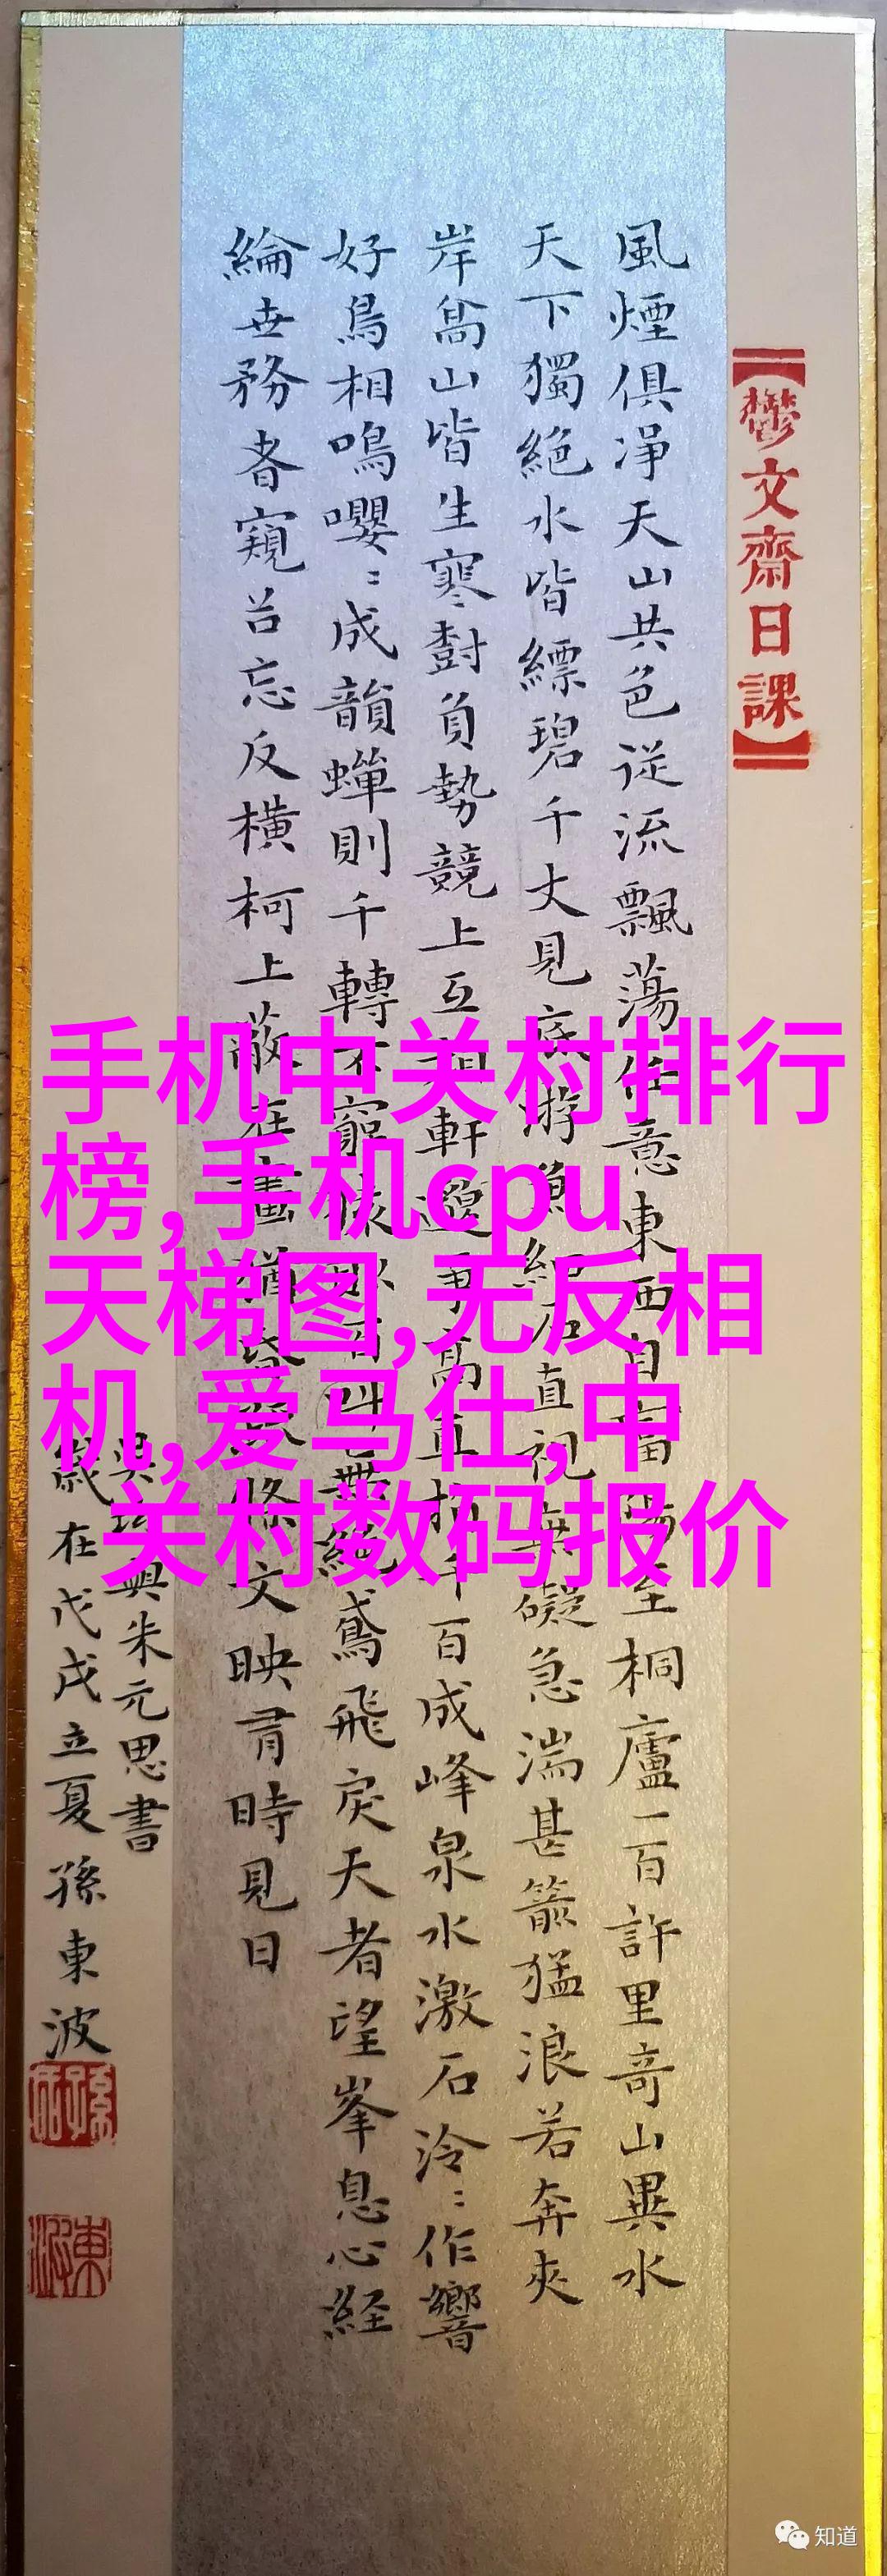 【鬱文齋日課】
風煙俱淨天山共色従流飄蕩任意東西自富陽至桐廬一百許里竒山異水
天下獨絕水皆縹碧千丈見底游魚細石直視無礙急湍甚箭猛浪若奔夾
岸高山皆生寒樹負勢競上互相軒邈爭高直指千百成峰泉水激石泠〻作響
好鳥相鳴嚶〻成韻蟬則千轉不窮猿則百叫無絕鳶飛戾天者望峯息心経
綸世務者窺谷忘反橫柯上蔽在晝猶昏疏條交映有時見日
吳均與朱元思書
歲在戊戌立夏孫東波
手机中关村排行
榜,手机cpu
天梯图,无反相
机,爱马仕,中
关村数码报价
知道